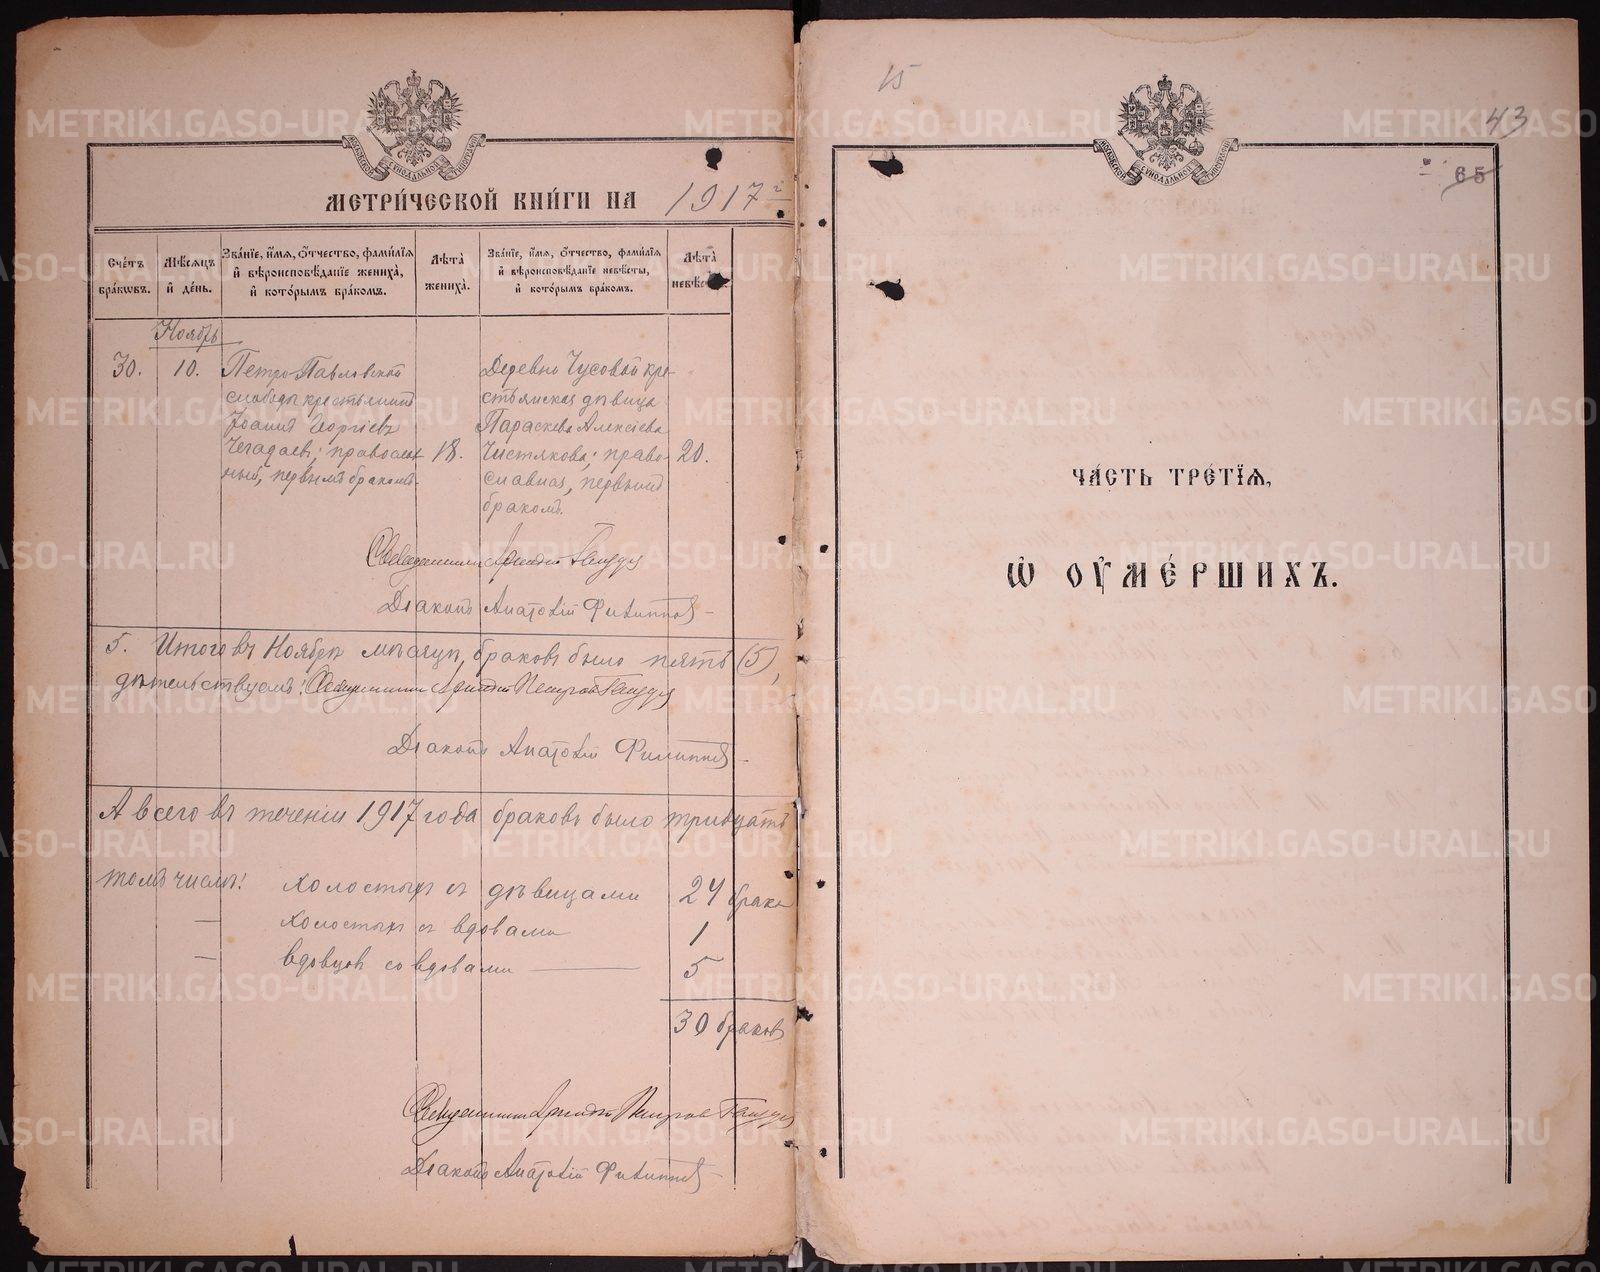 МОСКОВСКОЙ СѴНОДАЛЬНОЙ ТИПОГРАФІИ
МЕТРИ́ЧЕСКОЙ КНИ́ГИ НА 1917 г
Сче́тъ бра́кѡвъ.
Мѣ́сяцъ и҆ де́нь.
Зва́нїе, и҆́мѧ, ѻ҆́тчество, фами́лїѧ
и҆ вѣроисповѣ́данїе жениха̀,
и҆ кото́рымъ бра́комъ.
Лѣ́та
жениха̀.
Зва́нїе, и҆́мѧ, ѻ҆́тчество, фами́лїѧ
и҆ вѣроисповѣ́данїе невѣ́сты,
и҆ кото́рымъ бра́комъ.
Лѣ́та
невѣ́с
Ноябрь
30.
10.
Петро-Павловской
слободы крестьянинъ
Іоаннъ Георгіевъ
Чегадаевъ; православ
ный, первымъ бракомъ.
18.
Деревни Чусовой кре-
стьянская дѣвица
Параскева Алексіева
Чистякова; право-
славная, первымъ
бракомъ.
20.
Священникъ Аркадій
Діаконъ Анатолій Филипповъ
5. Итого въ Ноябрѣ мѣсяцѣ браковъ было пять (5),
дѣтельствуемъ: Священникъ Аркадій Петровъ
Діаконъ Анатолій Филипповъ
А всего въ теченіи 1917 года браковъ было тридцать
томъ числѣ: холостыхъ съ дѣвицами 24 брака
— холостыхъ съ вдовами 1
— вдовцовъ со вдовами — 5
30 браковъ
Священникъ Аркадій Петровъ
Діаконъ Анатолій Филипповъ
15
43
65
МОСКОВСКОЙ СѴНОДАЛЬНОЙ ТИПОГРАФІИ
ЧА́СТЬ ТРЕ́ТЇѦ,
Ѡ҆ ОУ҆МЕ́РШИХЪ.
METRIKI.GASO-URAL.RU